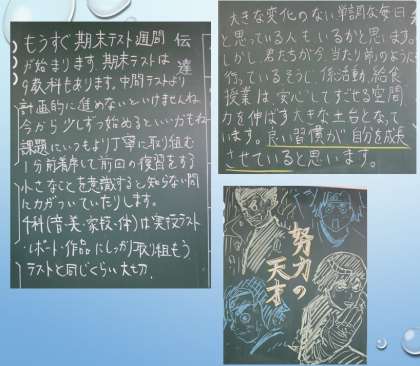 もうすぐ期末テスト週間
伝達
が始まります。期末テストは
9教科もあります。中間テストより
計画的に進めないといけませんね
今から少しずつ始めるといいかもね
課題にいつもより丁寧に取り組む
1分前着席して前回の復習をする
小さなことを意識すると知らない間
に力がついていたりします。
4科(音・美・家技・体)は実技テスト
レポート・作品にしっかり取り組もう
テストと同じくらい大切。
大きな変化のない単調な毎日
と思っている人もいるかと思います。
しかし、君たちが今、当たり前のように
行っているそうじ、係活動、給食
授業は安心してすごせる空間
力を伸ばす大きな土台となって
います。良い習慣が自分を成長
させていると思います。
努力の
天才